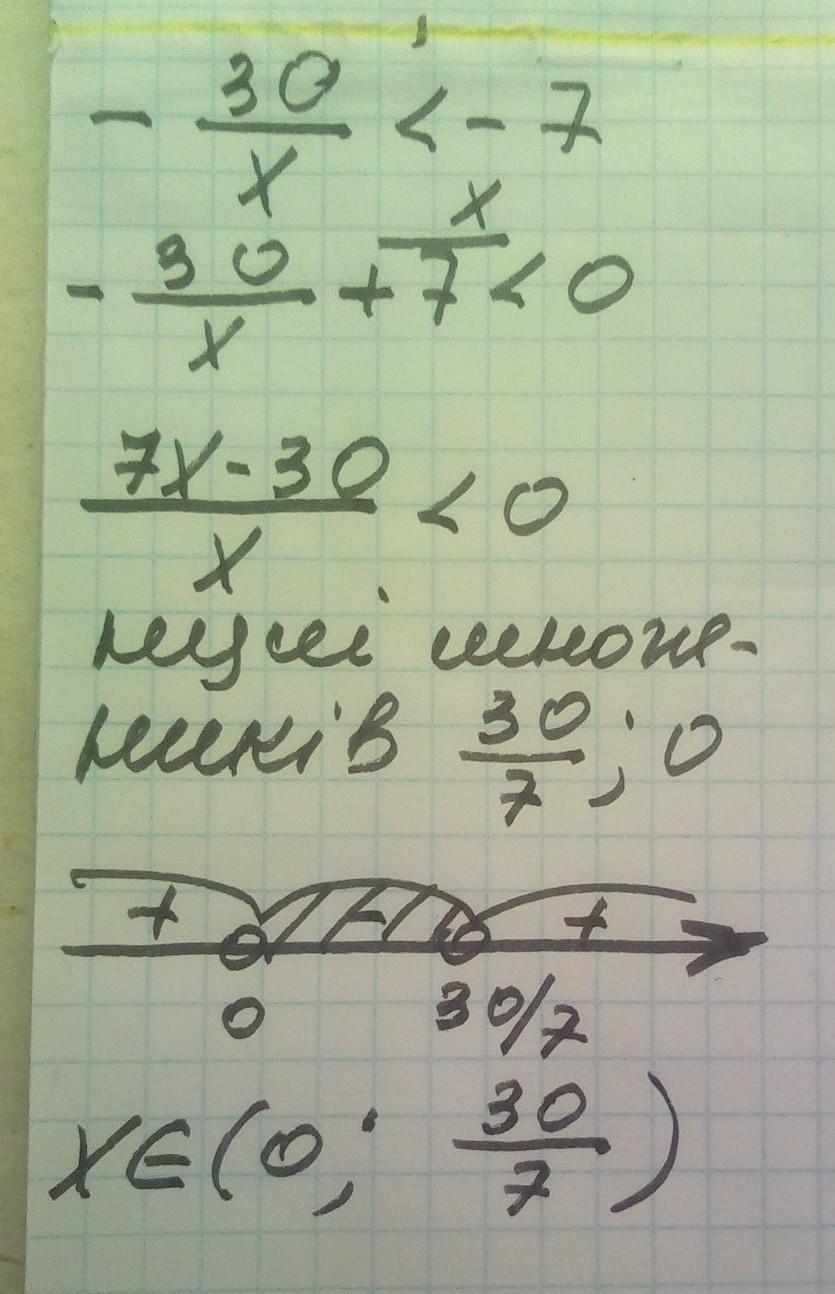 - 30/x < - 7
- 30/x + 7 x < 0
7x - 30/x < 0
нулі множ-
ників 30/7 ; 0
+ - +
0 30/7
x ∈ (0; 30/7)